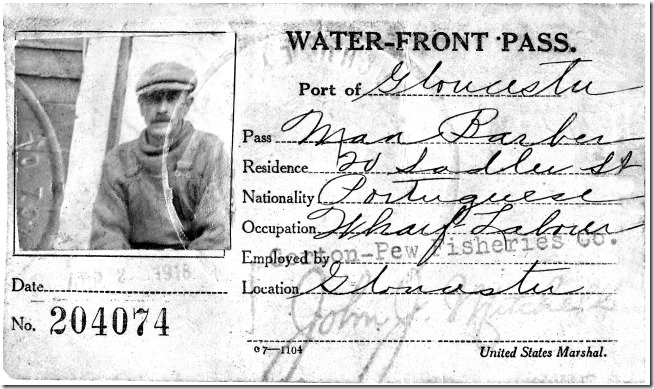 WATER-FRONT PASS.
Port of Gloucester
Pass Man Barber
Residence 20 Sadler St
Nationality Portuguese
Occupation Wharf Laborer
Gorton-Pew Fisheries Co.
Employed by
Location Gloucester
1918
Date
No. 204074
John J.
7—1104
United States Marshal.